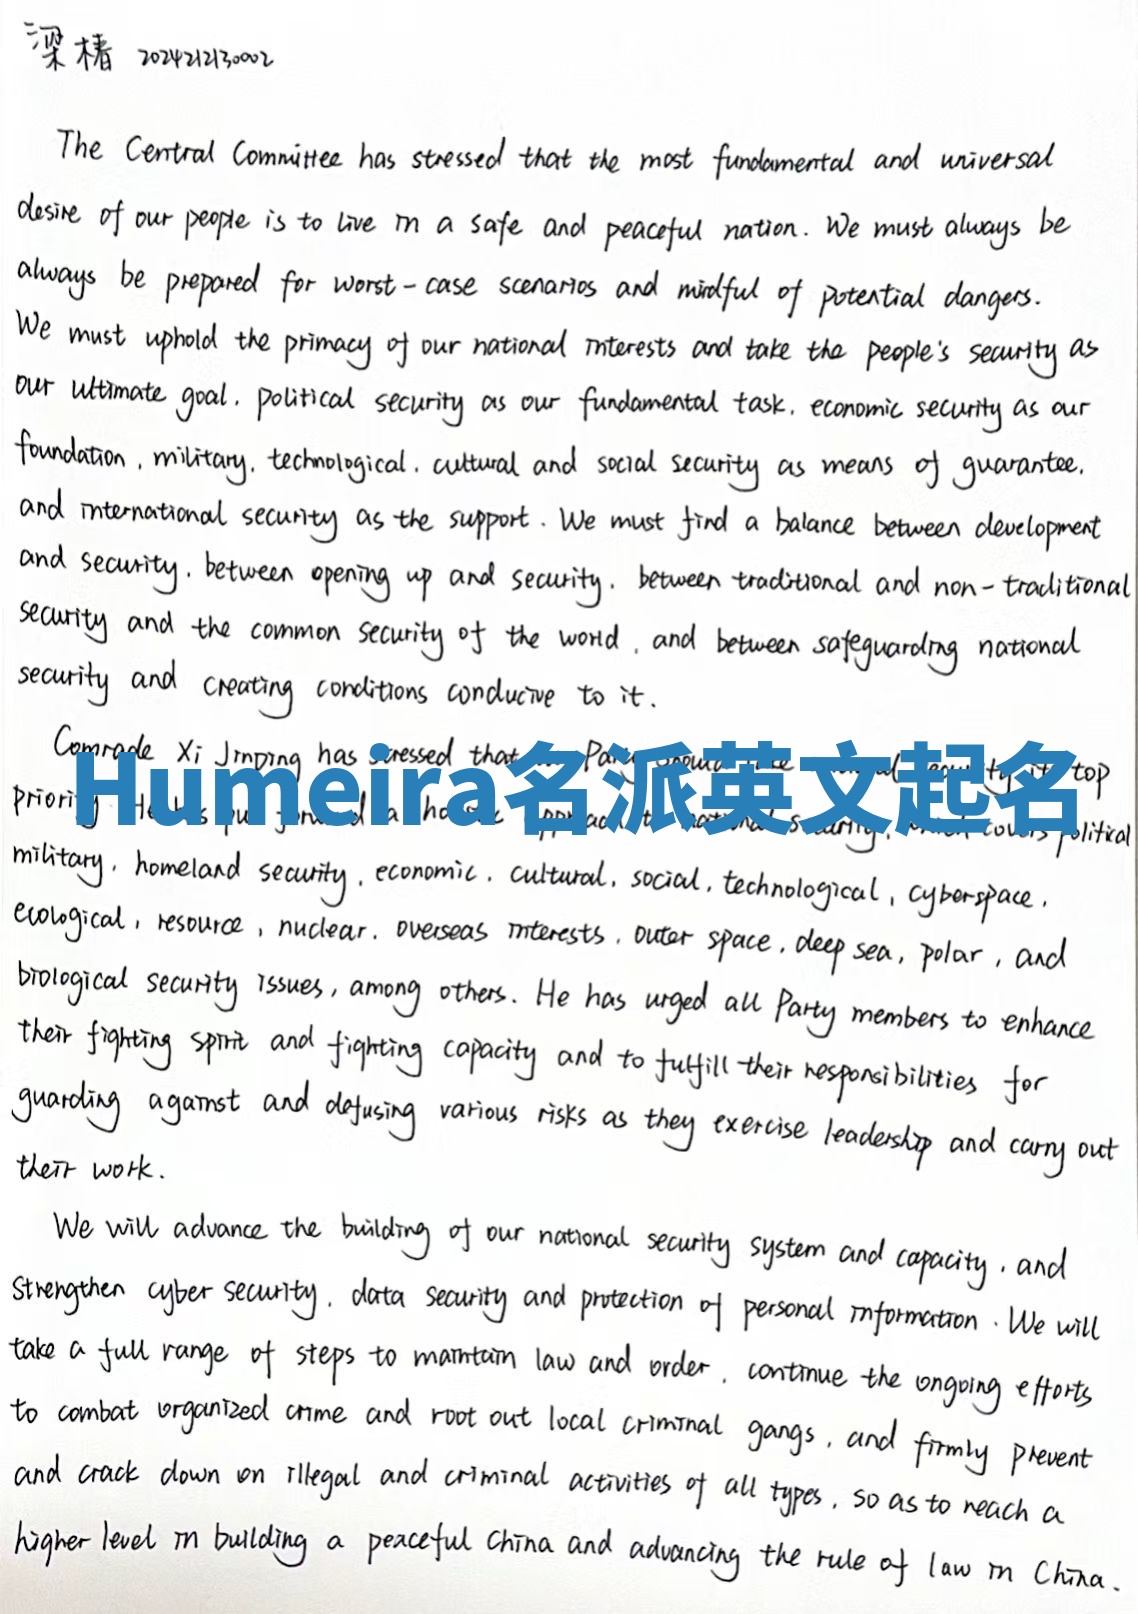 梁椿 2024212130002
The Central Committee has stressed that the most fundamental and universal
desire of our people is to live in a safe and peaceful nation. We must always be
always be prepared for worst-case scenarios and mindful of potential dangers.
We must uphold the primacy of our national interests and take the people's security as
our ultimate goal, political security as our fundamental task, economic security as our
foundation, military, technological, cultural and social security as means of guarantee,
and international security as the support. We must find a balance between development
and security, between opening up and security, between traditional and non-traditional
security and the common security of the world, and between safeguarding national
security and creating conditions conducive to it.
Comrade Xi Jinping has stressed that Party top
Humeira名派英文起名
priority political
military, homeland security, economic, cultural, social, technological, cyberspace,
ecological, resource, nuclear, overseas interests, outer space, deep sea, polar, and
biological security issues, among others. He has urged all Party members to enhance
their fighting spirit and fighting capacity and to fulfill their responsibilities for
guarding against and defusing various risks as they exercise leadership and carry out
their work.
We will advance the building of our national security system and capacity, and
strengthen cyber security, data security and protection of personal information. We will
take a full range of steps to maintain law and order, continue the ongoing efforts
to combat organized crime and root out local criminal gangs, and firmly prevent
and crack down on illegal and criminal activities of all types, so as to reach a
higher level in building a peaceful China and advancing the rule of law in China.